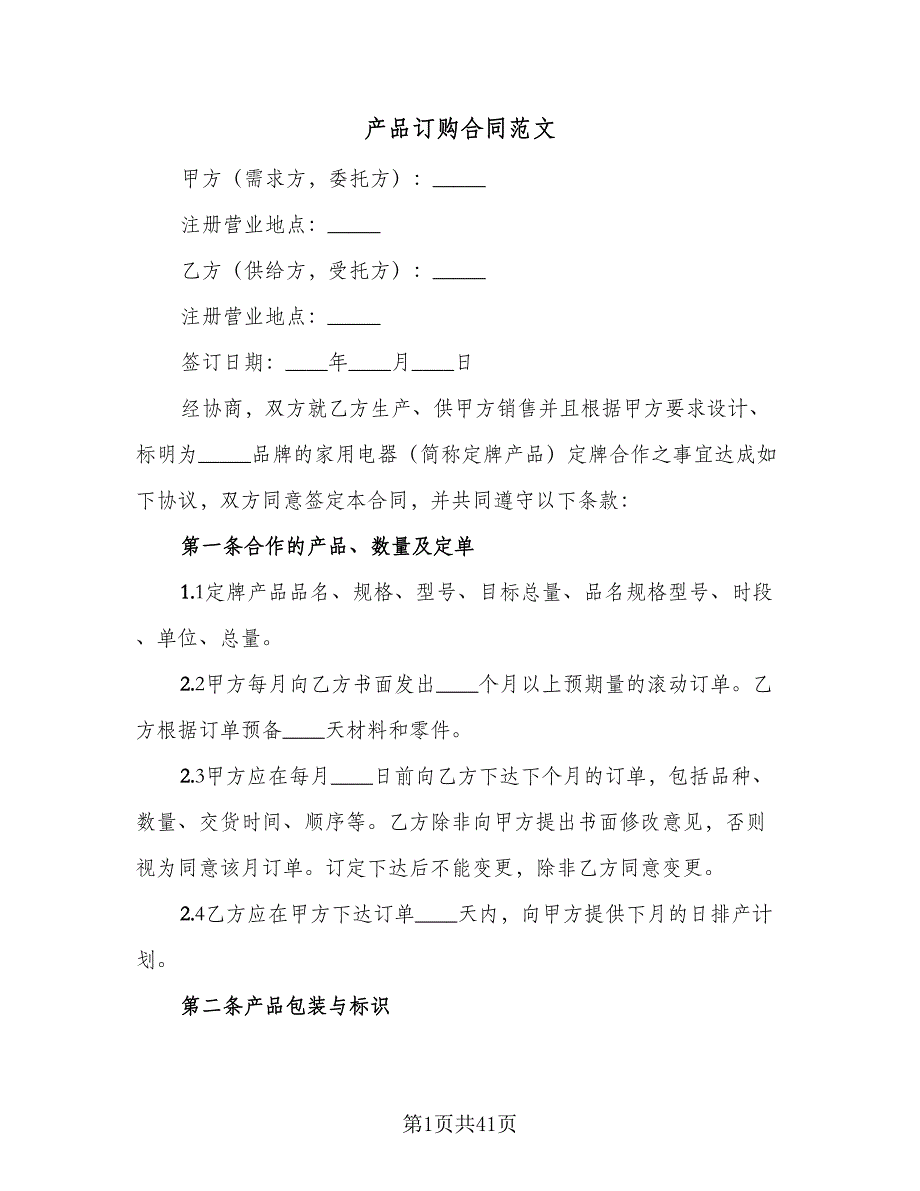 产品订购合同范文
甲方（需求方，委托方）：_____
注册营业地点：_____
乙方（供给方，受托方）：_____
注册营业地点：_____
签订日期：____年____月____日
经协商，双方就乙方生产、供甲方销售并且根据甲方要求设计、
标明为_____品牌的家用电器（简称定牌产品）定牌合作之事宜达成如
下协议，双方同意签定本合同，并共同遵守以下条款：
第一条合作的产品、数量及定单
1.1定牌产品品名、规格、型号、目标总量、品名规格型号、时段
、单位、总量。
2.2甲方每月向乙方书面发出____个月以上预期量的滚动订单。乙
方根据订单预备____天材料和零件。
2.3甲方应在每月____日前向乙方下达下个月的订单，包括品种、
数量、交货时间、顺序等。乙方除非向甲方提出书面修改意见，否则
视为同意该月订单。订定下达后不能变更，除非乙方同意变更。
2.4乙方应在甲方下达订单____天内，向甲方提供下月的日排产计
划。
第二条产品包装与标识
第1页共41页